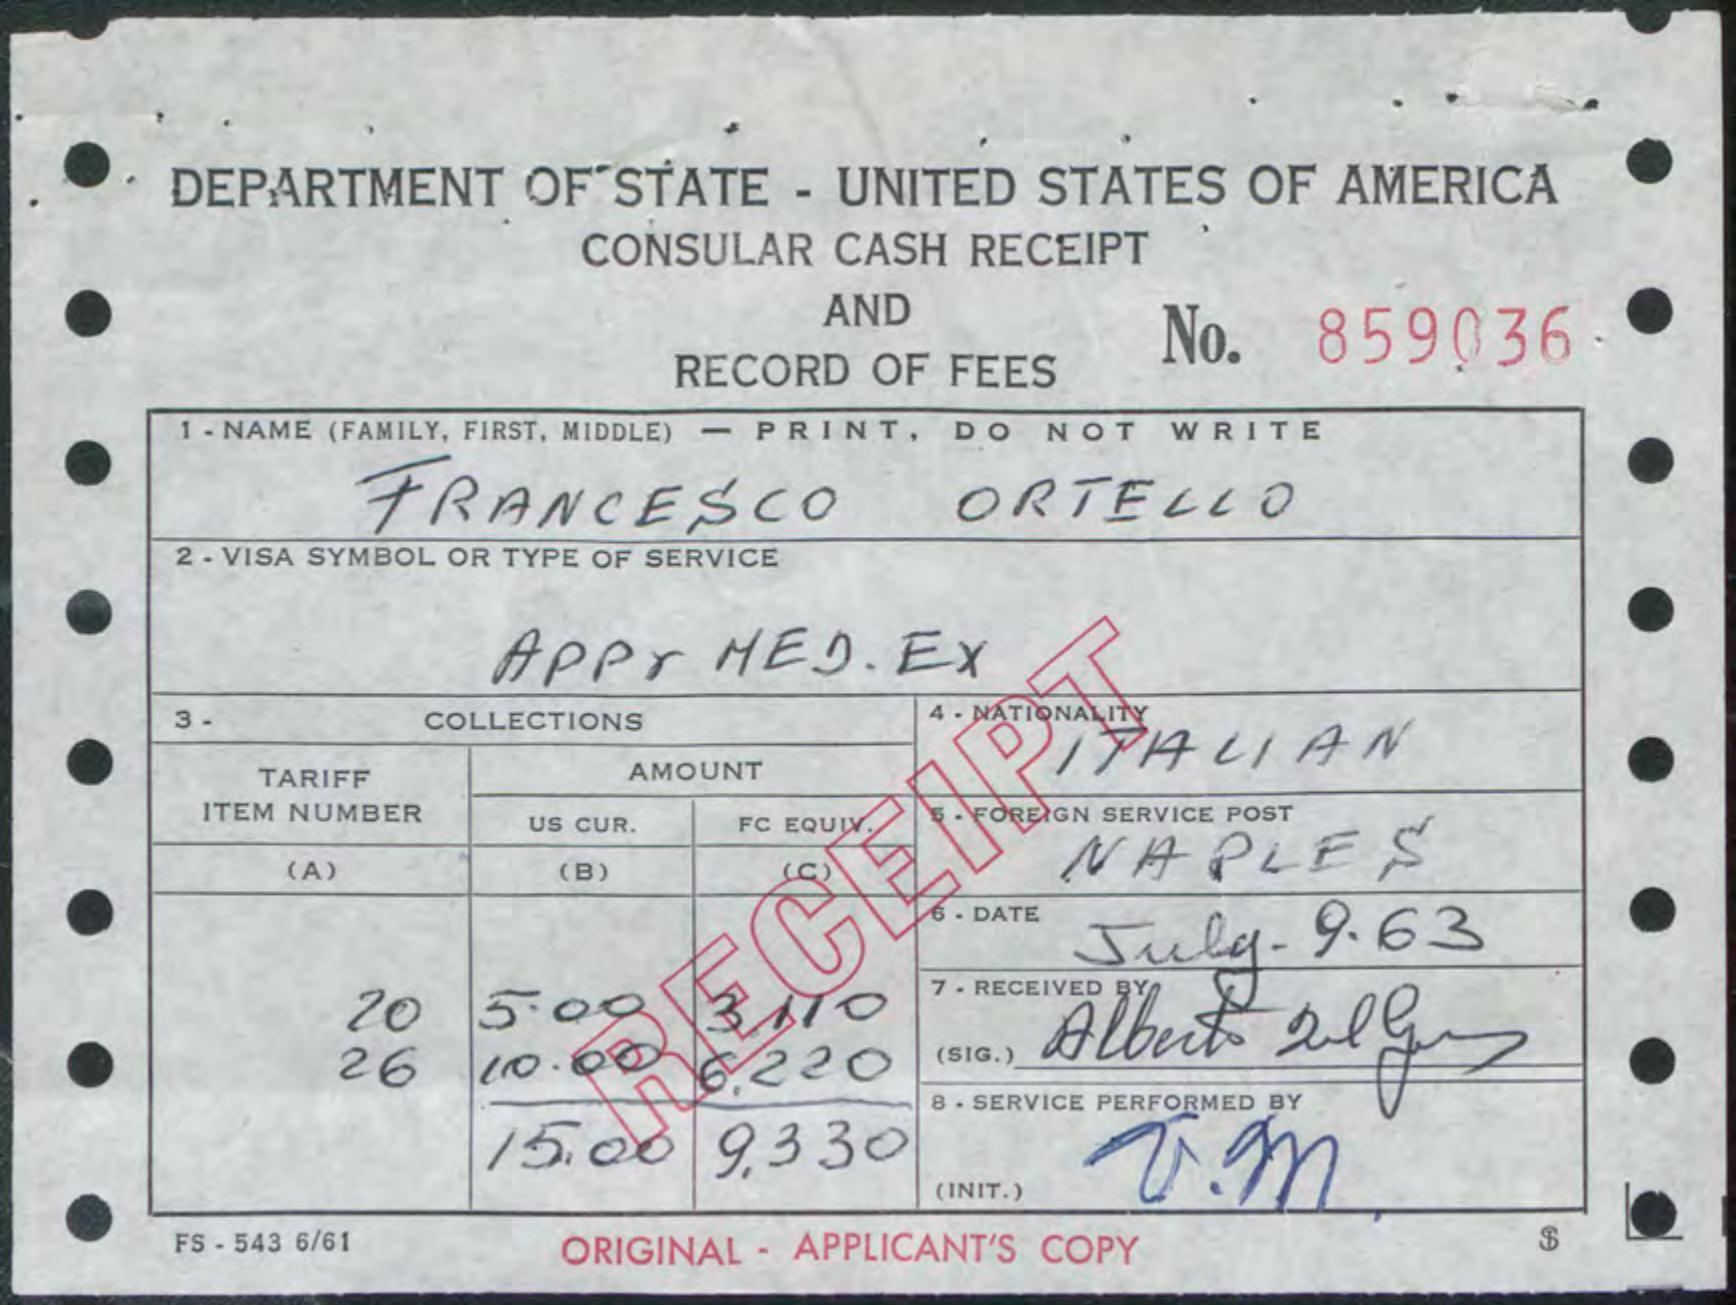 DEPARTMENT OF STATE - UNITED STATES OF AMERICA
CONSULAR CASH RECEIPT
AND
RECORD OF FEES
No. 859036
1 - NAME (FAMILY, FIRST, MIDDLE) — PRINT, DO NOT WRITE
FRANCESCO ORTELLO
2 - VISA SYMBOL OR TYPE OF SERVICE
APPY MED. EX
3 - COLLECTIONS
TARIFF ITEM NUMBER
AMOUNT
US CUR. FC EQUIV.
(A) (B) (C)
20 5.00 3,110
26 10.00 6,220
15.00 9,330
4 - NATIONALITY
ITALIAN
5 - FOREIGN SERVICE POST
NAPLES
6 - DATE
July - 9.63
7 - RECEIVED BY
(SIG.) Alberto
8 - SERVICE PERFORMED BY
(INIT.) V.M
RECEIPT
FS - 543 6/61
ORIGINAL - APPLICANT'S COPY
$